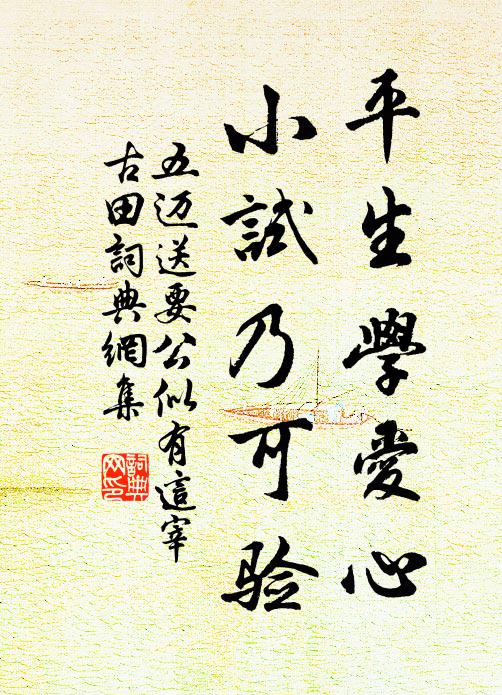 平生學愛心
小試乃可验
五迈送要公似有這宰
古田詞典網集
詞典
网印